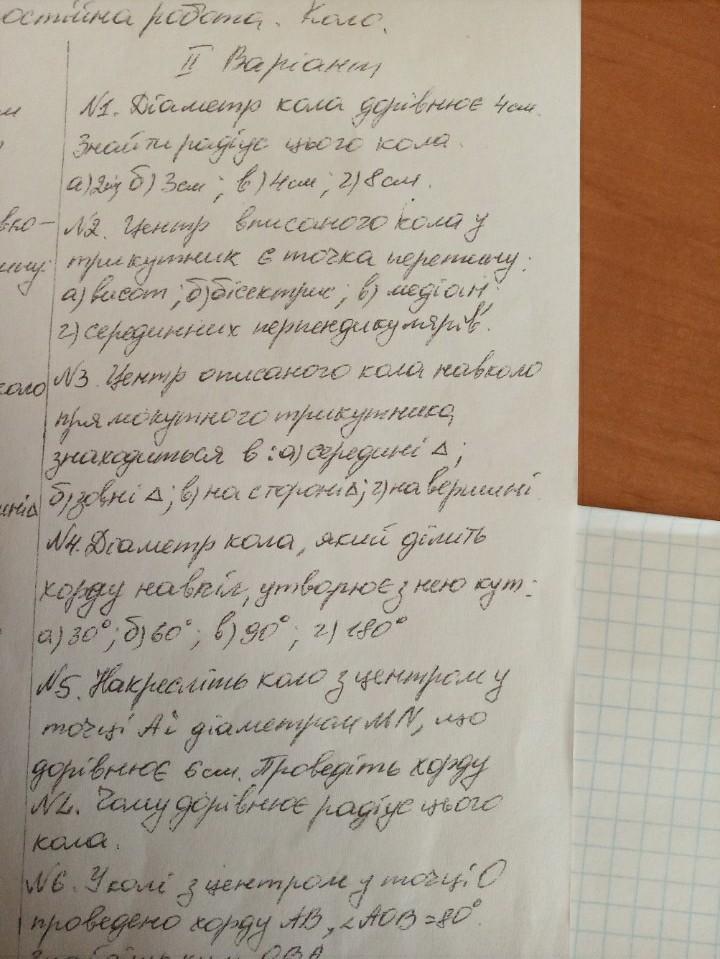 остійна робота. Коло.
II Варіант
№1. Діаметр кола дорівнює 4 см.
Знайти радіус цього кола.
а) 2см; б) 3см; в) 4см; г) 8 см.
№2. Центр вписаного кола у
трикутник є точка перетину:
а) висот; б) бісектрис; в) медіан
г) серединних перпендикулярів.
№3. Центр описаного кола навколо
прямокутного трикутника
знаходиться в: а) середині △;
б) зовні △; в) на стороні △; г) на вершині
№4. Діаметр кола, який ділить
хорду навпіл, утворює з нею кут:
а) 30°; б) 60°; в) 90°; г) 180°
№5. Накресліть коло з центром у
точці А і діаметром MN, що
дорівнює 6 см. Проведіть хорду
NL. Чому дорівнює радіус цього
кола.
№6. У колі з центром у точці О
проведено хорду АВ, ∠АОВ = 80°.
ОВА